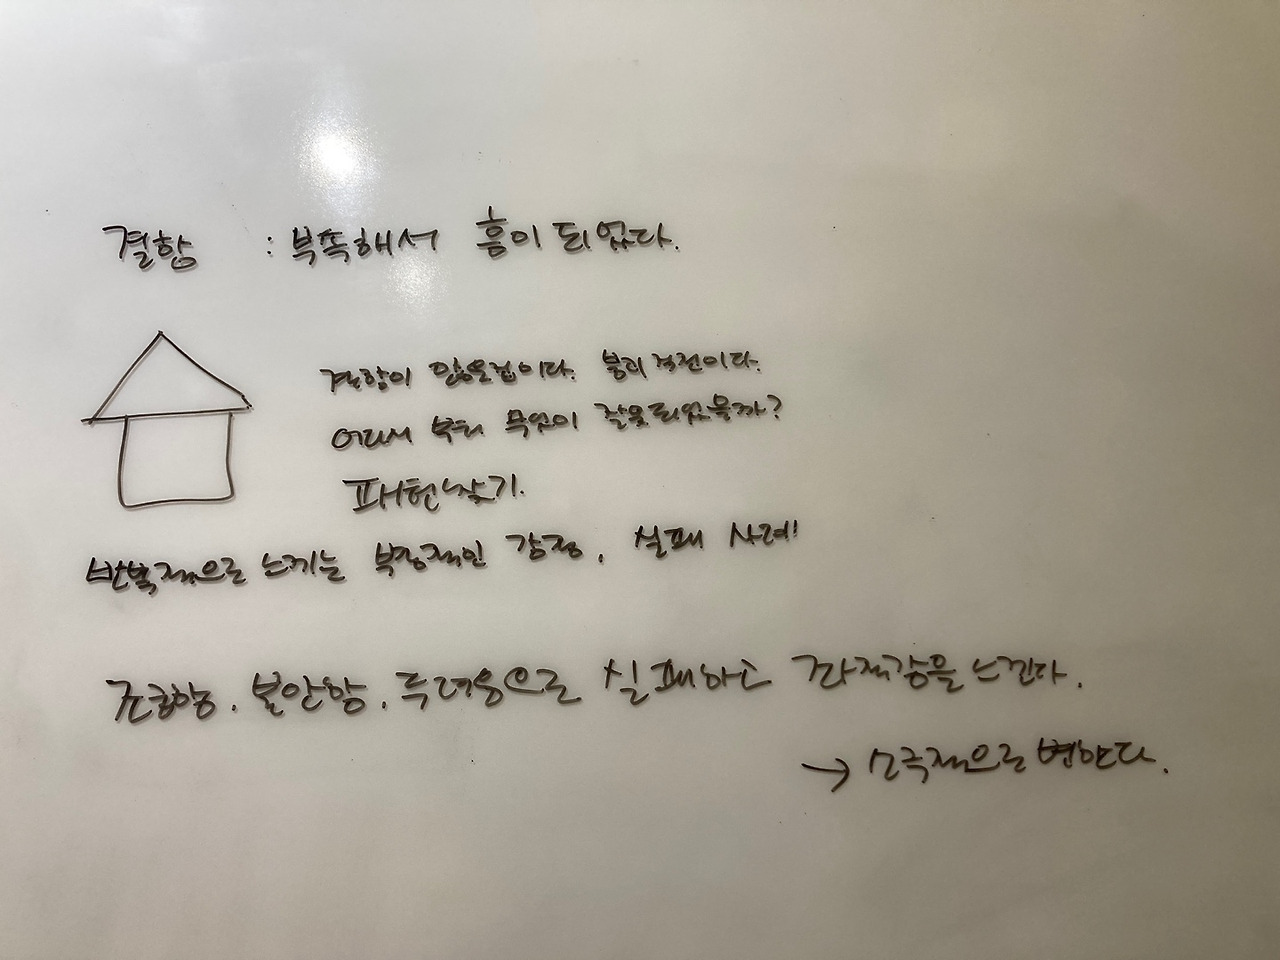 결함 : 부족해서 흠이 되었다.
결함이 많은집이다. 붕괴 직전이다.
어디서 부터 무엇이 잘못되었을까?
패턴찾기.
반복적으로 느끼는 부정적인 감정, 실패 사례!
조급함, 불안함, 두려움으로 실패하고 좌절감을 느낀다.
→ 소극적으로 변한다.